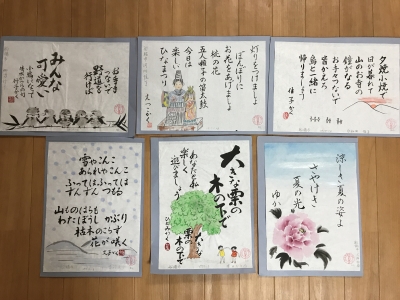 お手手
つないで
野道を
行けば
みんな
可愛い
小鳥になって
灯りをつけましょ
ぼんぼりに
お花をあげましょ
桃の花
五人囃子の笛太鼓
今日は
楽しい
ひなまつり
夕焼小焼で
日が暮れて
山のお寺の
鐘がなる
お手々つないで
皆かえろ
烏と一緒に
帰りましょう
雪やこんこ
あられやこんこ
ふってはふっては
ずんずんつもる
山も野はらも
わたぼうしかぶり
枯木のこらず
花が咲く
大きな栗の
木の下で
あなたと私
楽しく
遊びましょう
大きな
栗の
木の下で
涼しき夏の姿よ
さやけき
夏の光
ゆか